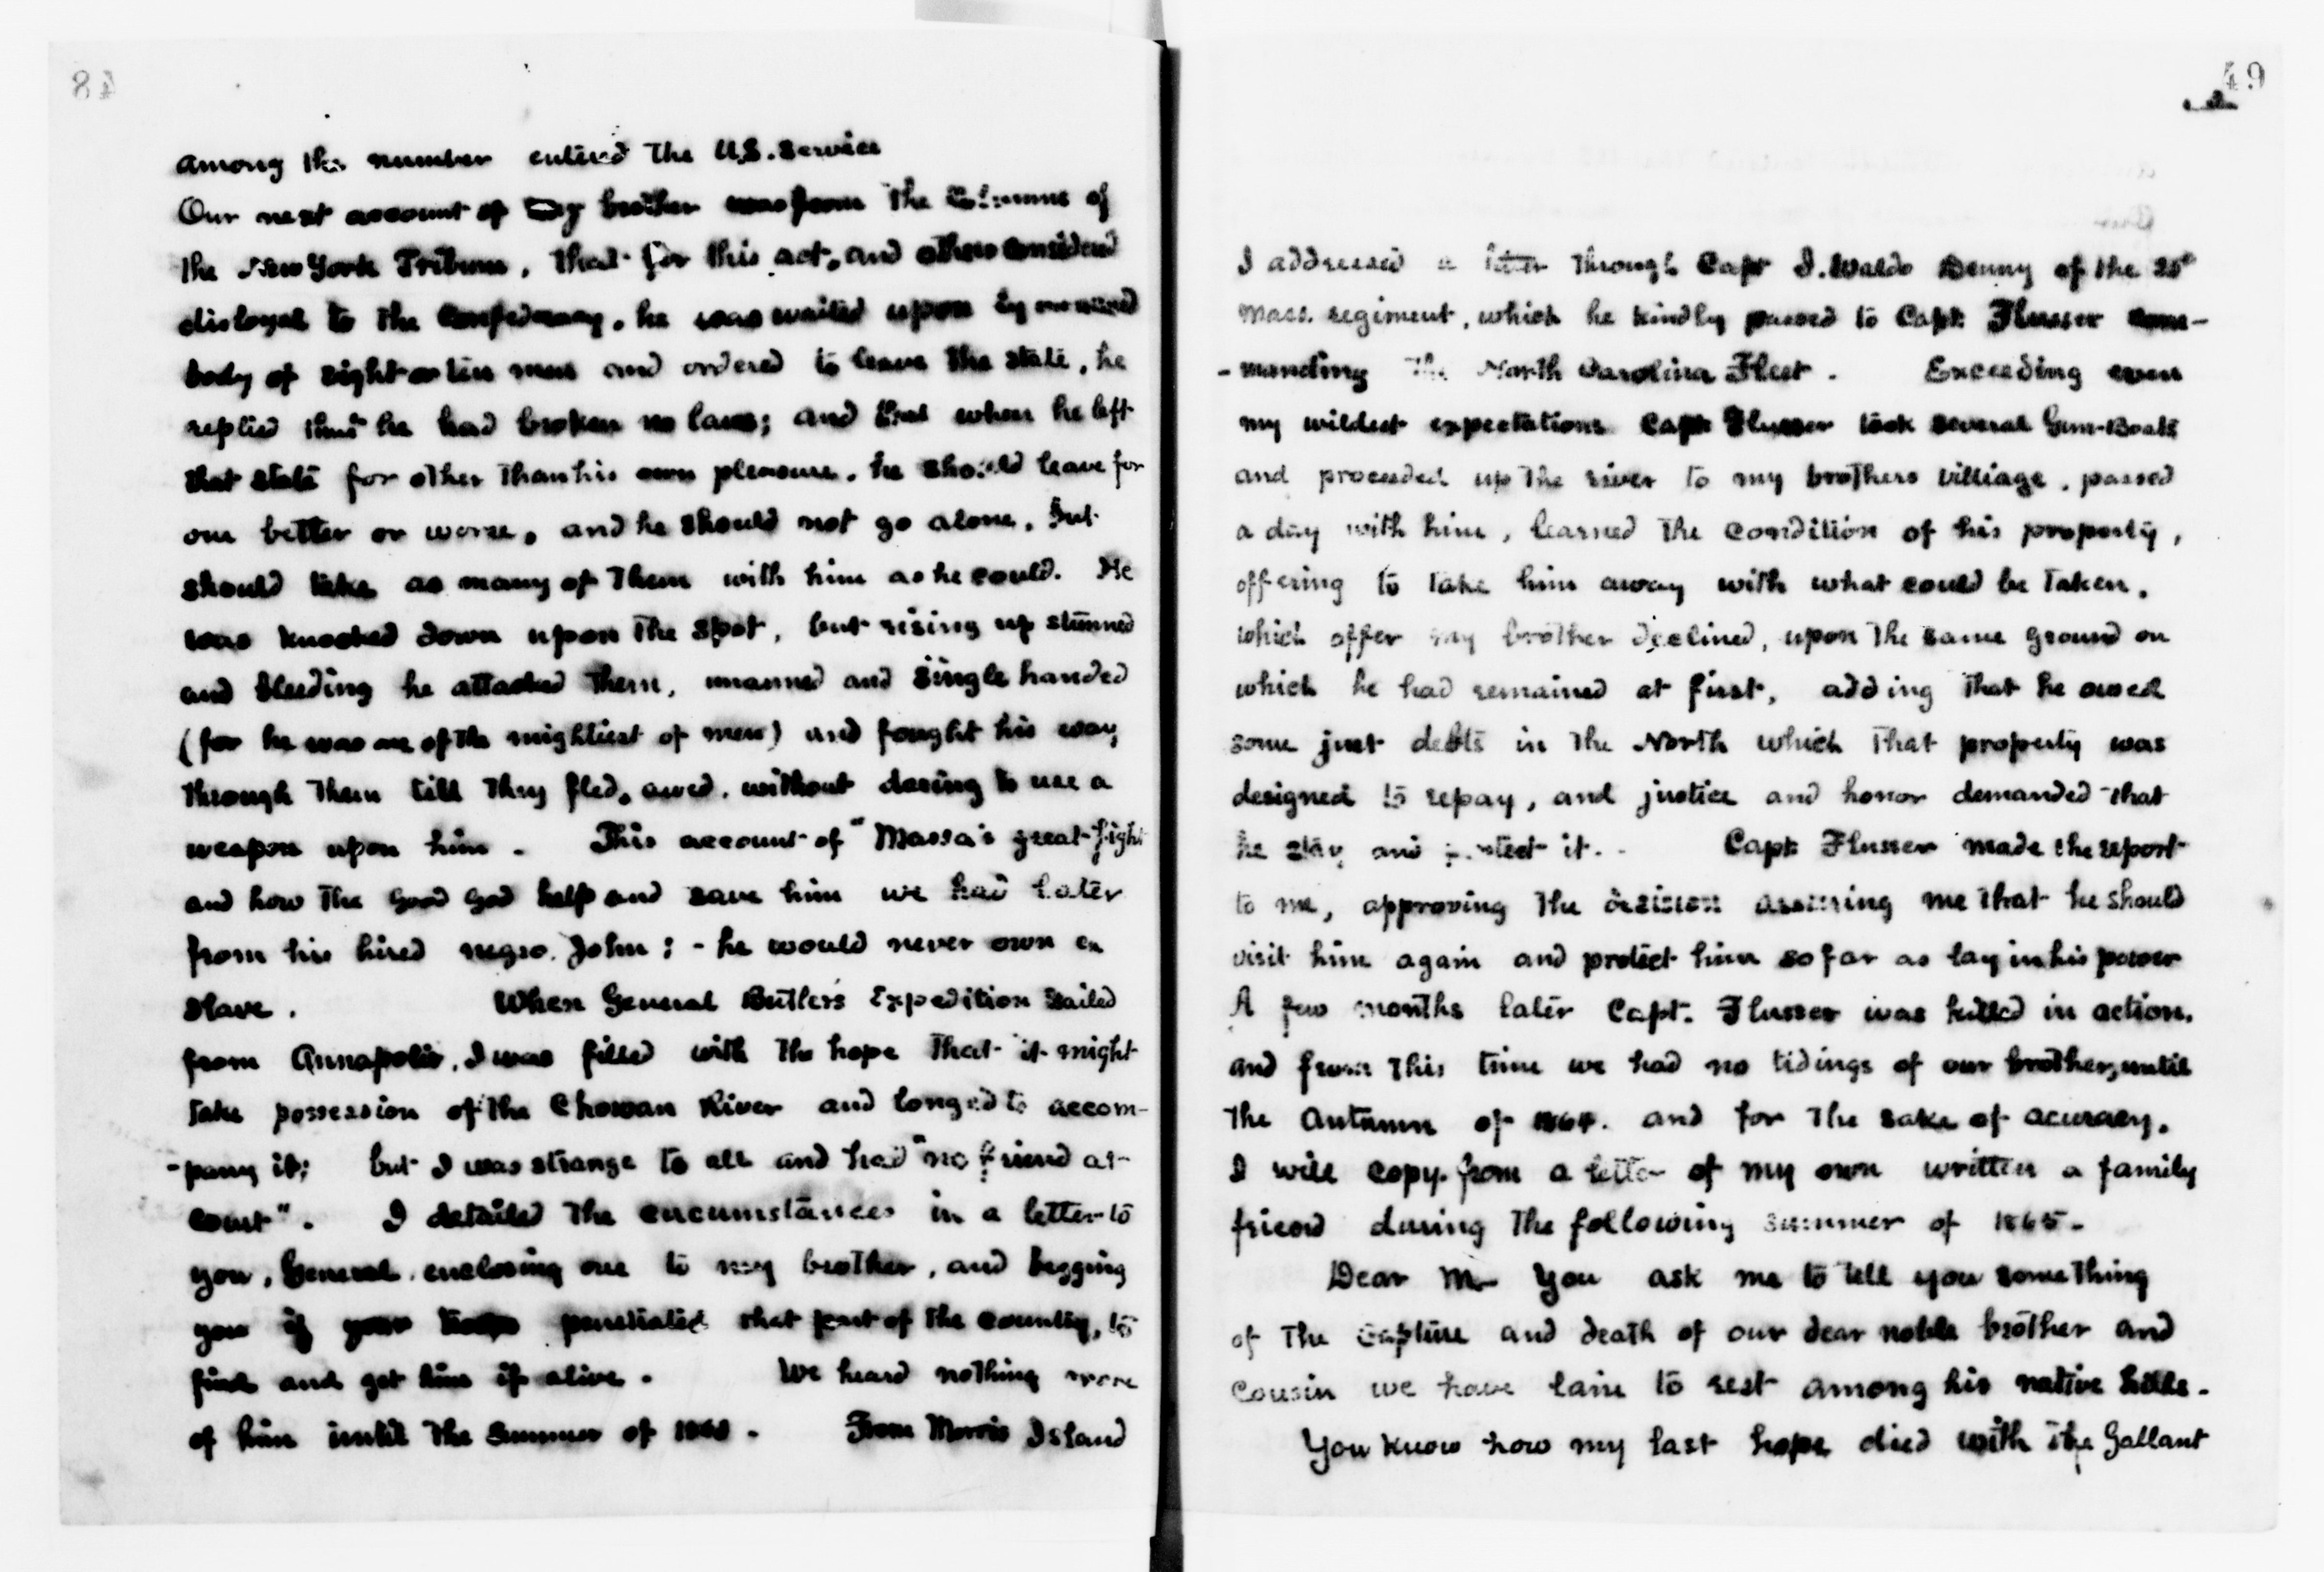 among the number entered the U.S. Service
Our next account of my brother was from the Columns of
the New York Tribune, that for this act, and others considered
disloyal to the Confederacy, he was waited upon by
body of eight or ten men and ordered to leave the state, he
replied that he had broken no laws; and that when he left
that state for other than his own pleasure, he should leave for
one better or worse, and he should not go alone, but
should take as many of them with him as he could. He
was knocked down upon the spot, but rising up stunned
and bleeding he attacked them, unarmed and single handed
(for he was one of the mightiest of men) and fought his way
through them till they fled, awed, without daring to use a
weapon upon him. This account of "Massa's great fight
and how the Good God help and save him we had later
from his hired negro. John; - he would never own a
slave. When General Butler's Expedition sailed
from Annapolis, I was filled with the hope that it might
take possession of the Chowan River and longed to accom-
-pany it; but I was strange to all and had "no friend at
court". I detailed the circumstances in a letter to
you, General, enclosing one to my brother, and begging
you if your troops penetrated that part of the country, to
find and get him if alive. We heard nothing more
of him until the Summer of 1863. From Morris Island
49
I addressed a letter through Capt J. Waldo Denny of the 25th
Mass. regiment, which he kindly passed to Capt. Flusser com-
-manding the North Carolina Fleet. Exceeding even
my wildest expectations Capt Flusser took several Gun-Boats
and proceeded up the river to my brothers villiage, passed
a day with him, learned the condition of his property,
offering to take him away with what could be taken,
which offer my brother declined, upon the same ground on
which he had remained at first, adding that he owed
some just debts in the North which that property was
designed to repay, and justice and honor demanded that
he stay and protect it. Capt Flusser made the report
to me, approving the decision assuring me that he should
visit him again and protect him so far as lay in his power
A few months later Capt. Flusser was killed in action,
and from this time we had no tidings of our brother, until
the Autumn of 1864. and for the sake of acuracy,
I will copy from a letter of my own written a family
friend during the following summer of 1865-
Dear Mr You ask me to tell you something
of the capture and death of our dear noble brother and
cousin we have lain to rest among his native hills.
You know how my last hope died with the Gallant